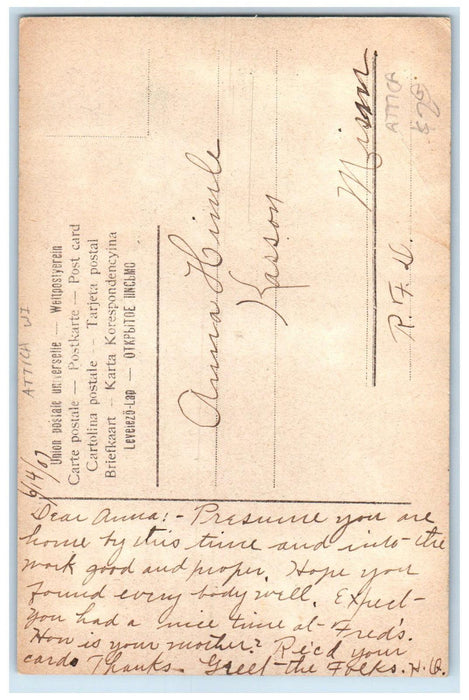 Union postale universelle — Weltpostverein
Carte postale — Postkarte — Post card
Cartolina postale — Tarjeta postal
Briefkaart — Karta Korespondencyina
Levelező-Lap — ОТКРЫТОЕ ПИСЬМО
ATTICA
Anna Himle
Kasson
Minn
R. F. D.
ATTICA
6/14/07
Dear Anna:- Presume you are
home by this time and into the
work good and proper. Hope you
found every body well. Expect
you had a nice time at Fred's.
How is your mother? Rec'd your
cards Thanks. Greet the Folks. H.O.